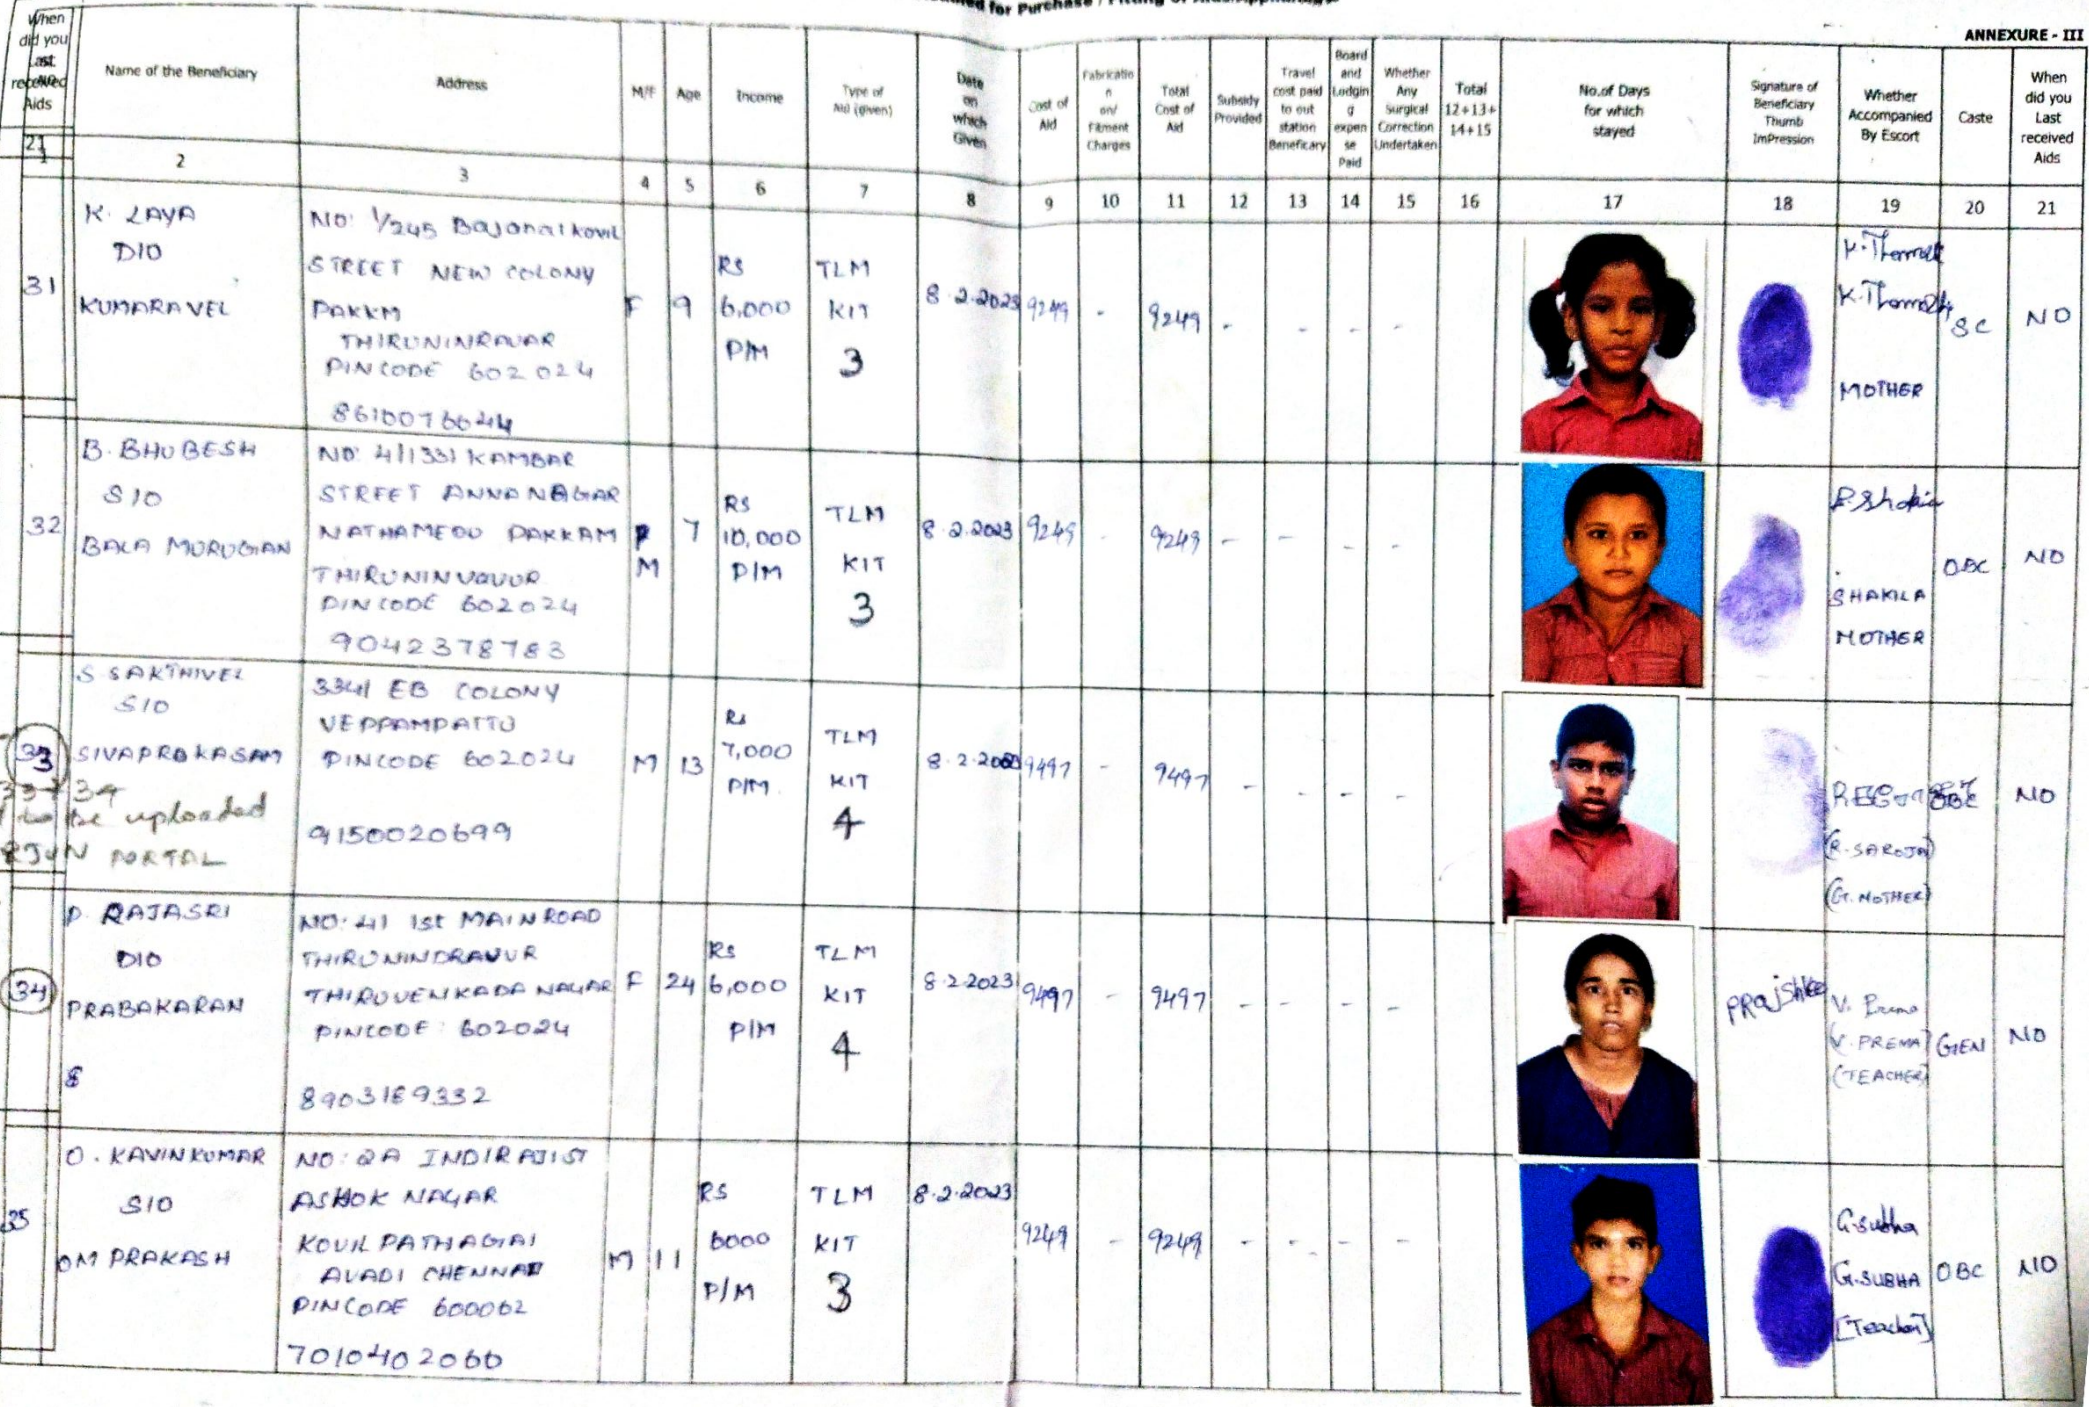 for Purchase / Fitting of
ANNEXURE - III
When did you Last received Aids
Name of the Beneficiary
Address
M/F
Age
Income
Type of Aid (given)
Date on which Given
Cost of Aid
Fabrication on/ Fitment Charges
Total Cost of Aid
Subsidy Provided
Travel cost paid to out station Beneficary
Board and Lodging expense Paid
Whether Any Surgical Correction Undertaken
Total 12+13+ 14+15
No.of Days for which stayed
Signature of Beneficiary Thumb ImPression
Whether Accompanied By Escort
Caste
When did you Last received Aids
21
1 2 3 4 5 6 7 8 9 10 11 12 13 14 15 16 17 18 19 20 21
31
K. LAYA
D/O
KUMARAVEL
NO: 1/245 Bajanaikovil
STREET NEW COLONY
PAKKM
THIRUNINRAVAR
PINCODE 602024
8610076644
F
9
RS
6,000
P/M
TLM
KIT
3
8.2.2023
9249
-
9249
-
-
-
-
K.Thamoth
MOTHER
SC
NO
32
B. BHUBESH
S/O
BALA MURUGAN
NO: 4/1331 KAMBAR
STREET ANNA NAGAR
NATHAMEDU PAKKAM
THIRUNINVAVUR
PINCODE 602024
9042378783
M
7
RS
10,000
P/M
TLM
KIT
3
8.2.2023
9249
-
9249
-
-
-
-
SHAKILA
MOTHER
OBC
NO
33
S SAKTHIVEL
S/O
SIVAPRAKASAM
33 & 34
to be uploaded
ARJUN PORTAL
334/ EB COLONY
VEPPAMPATTU
PINCODE 602024
9150020699
M
13
Rs
7,000
P/M
TLM
KIT
4
8.2.2023
9497
-
9497
-
-
-
-
(R. SAROJA)
(G. MOTHER)
OBC
NO
34
P. RAJASRI
D/O
PRABAKARAN
NO: 41 1st MAIN ROAD
THIRUNINDRAVUR
THIRUVENKADA NAGAR
PINCODE: 602024
8903189332
F
24
RS
6,000
P/M
TLM
KIT
4
8.2.2023
9497
-
9497
-
-
-
-
PRajshree
V. Prema
(V. PREMA)
(TEACHER)
GEN
NO
35
O. KAVINKUMAR
S/O
OM PRAKASH
NO: 2A INDIRAJI ST
ASHOK NAGAR
KOVIL PATHAGAI
AVADI CHENNAI
PINCODE 600062
7010402066
M
11
RS
6000
P/M
TLM
KIT
3
8.2.2023
9249
-
9249
-
-
-
-
G.subha
G.SUBHA
[Teacher]
OBC
NO